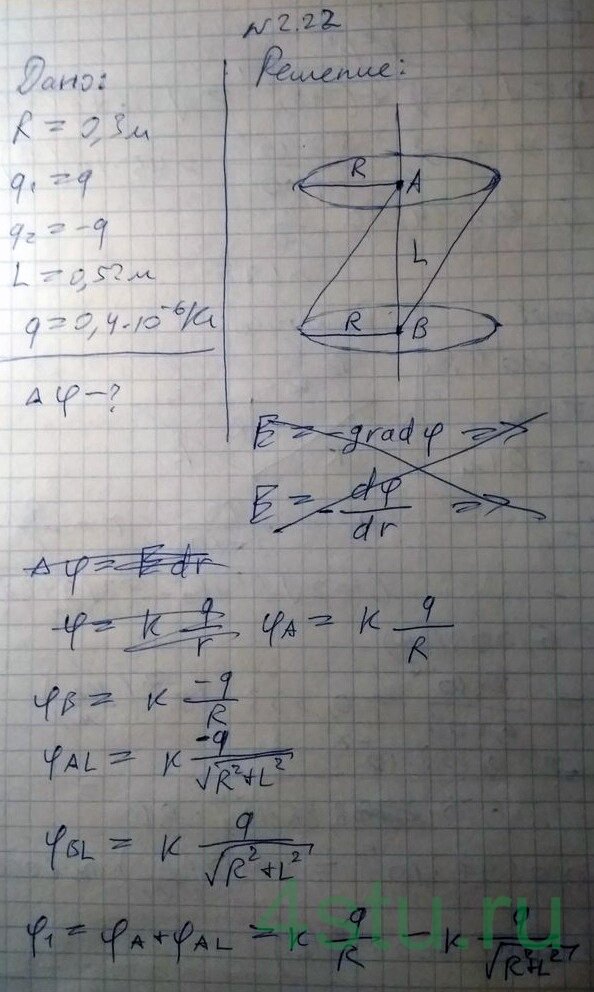 № 2.22
Дано:
R = 0,3 м
q₁ = q
q₂ = -q
L = 0,52 м
q = 0,4·10⁻⁶ Кл
Δφ - ?
Решение:
R A
L
R B
E = -grad φ =>
E = - dφ/dr =>
Δφ = E dr
φ = k q/r φA = k q/R
φB = k -q/R
φAL = k -q/√(R²+L²)
φBL = k q/√(R²+L²)
φ₁ = φA + φAL = k q/R - k q/√(R²+L²)
4stu.ru